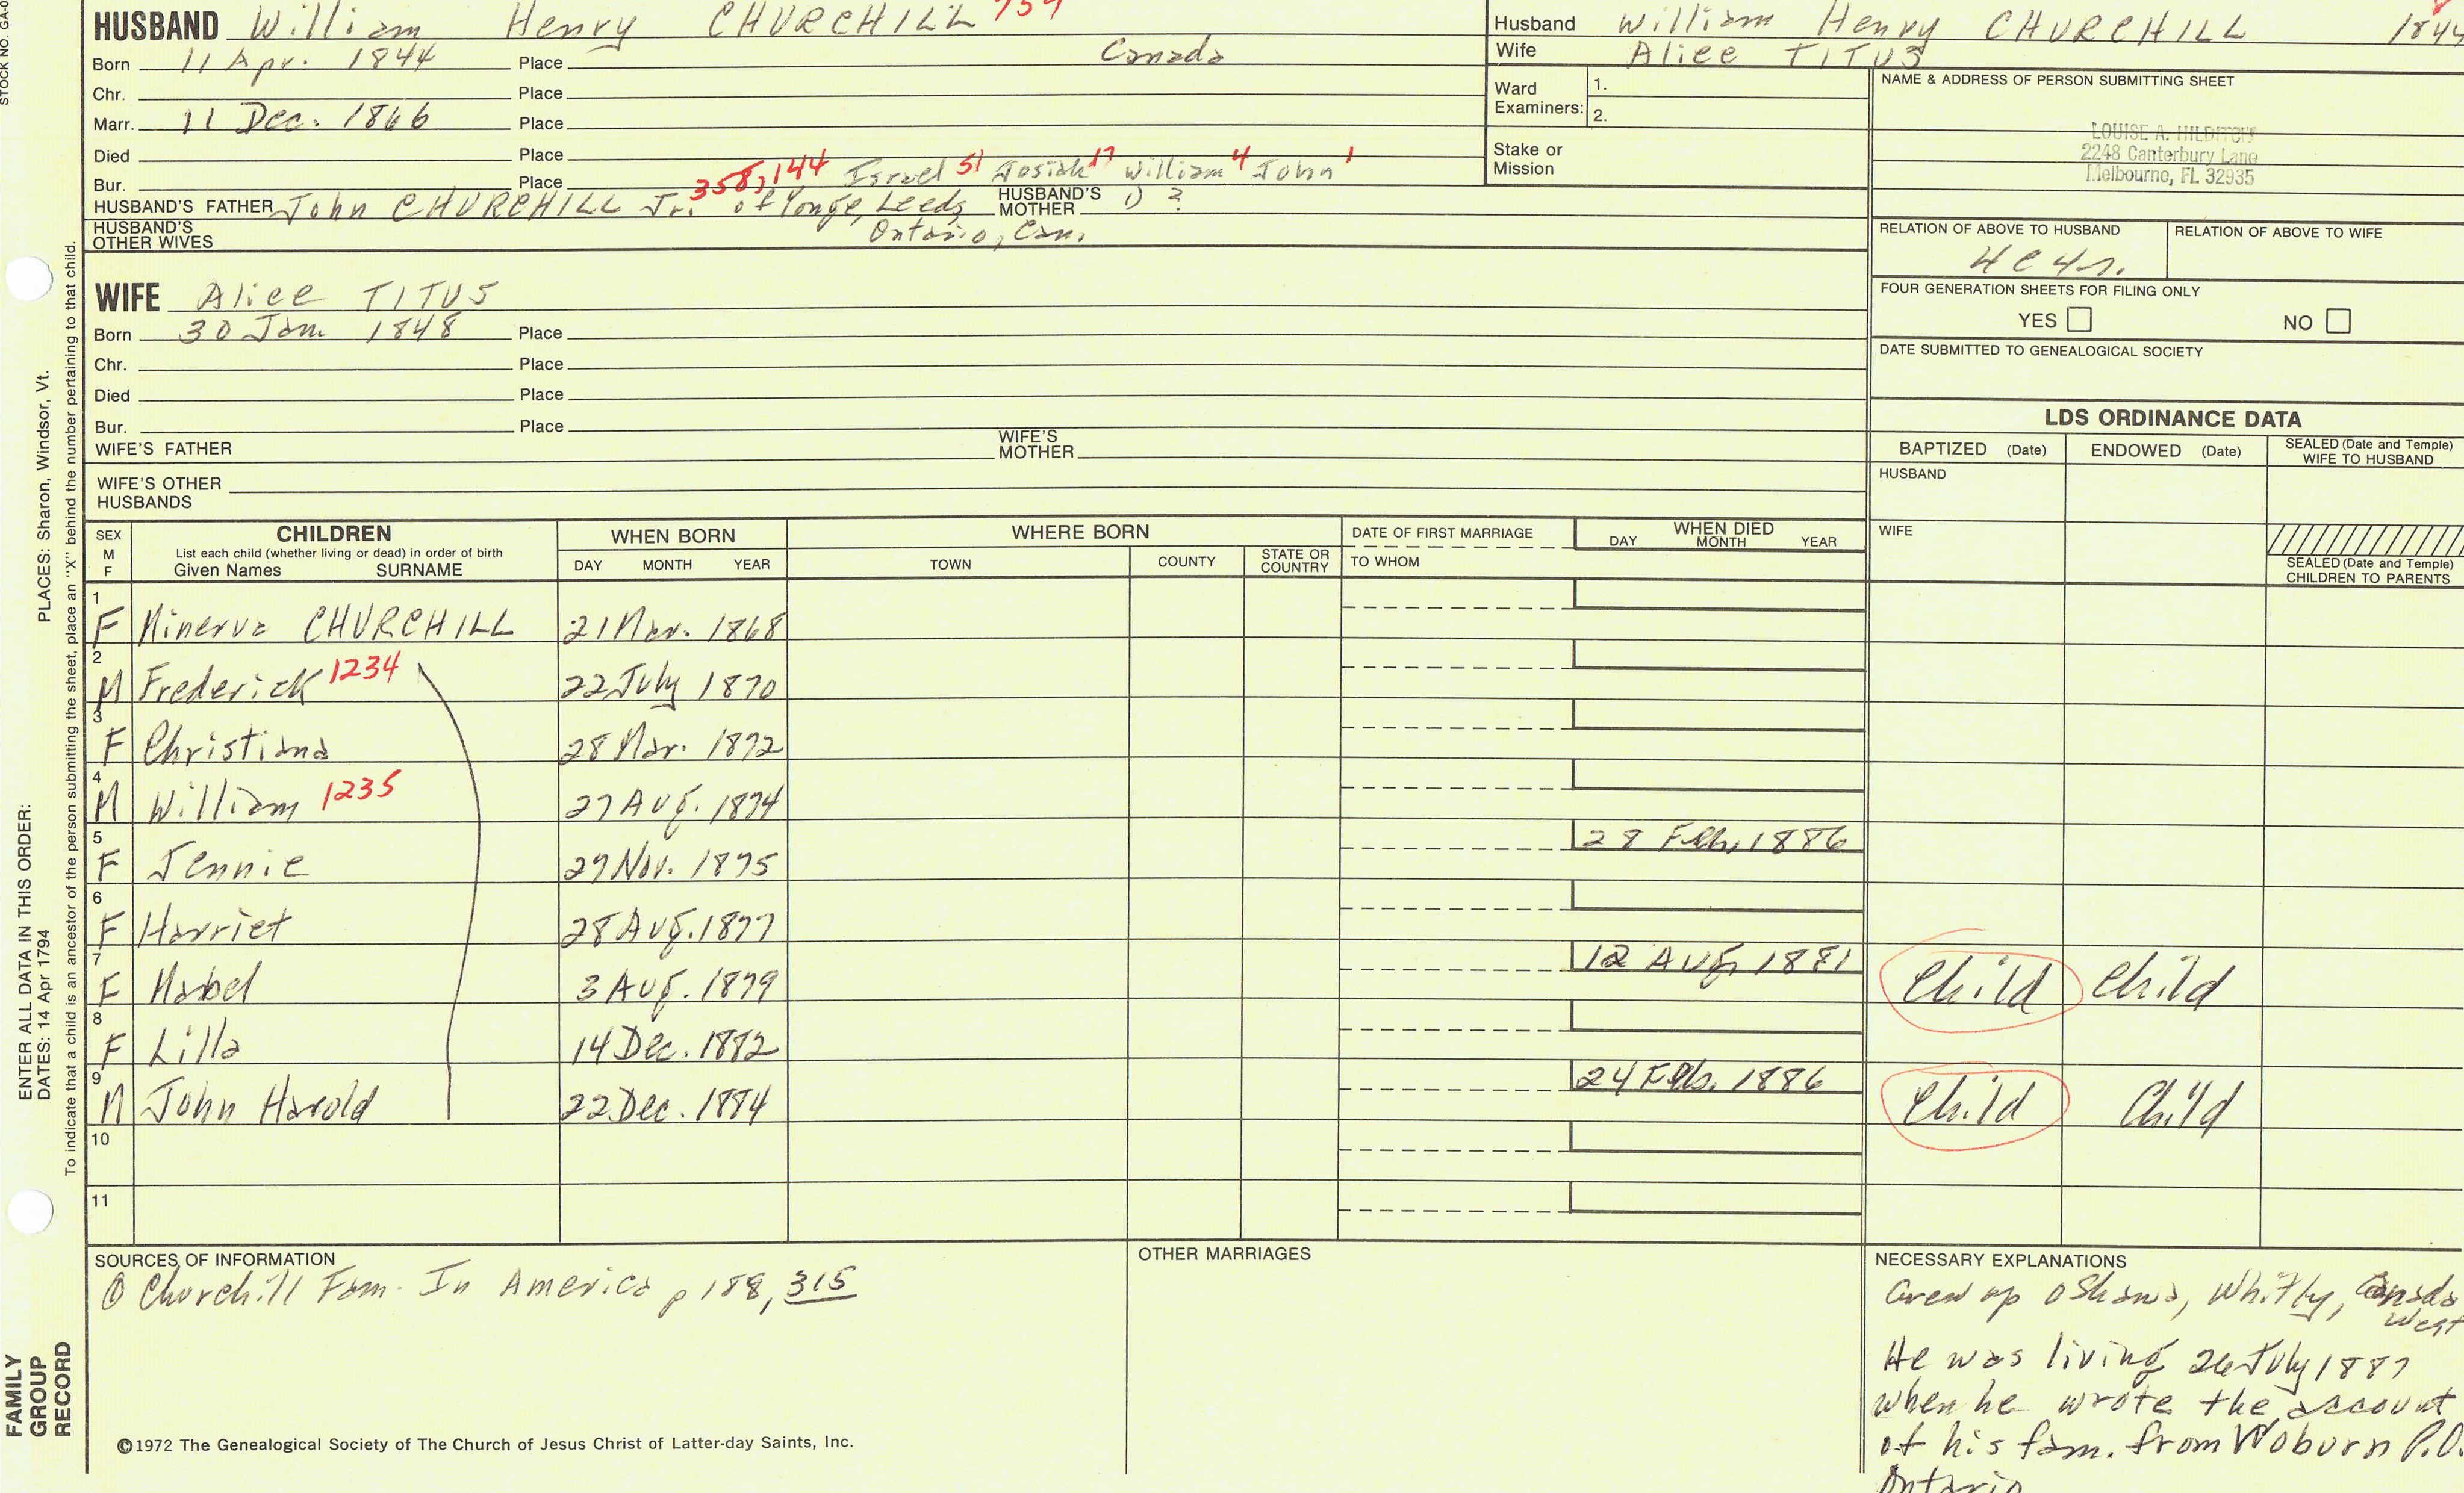 HUSBAND William Henry CHURCHILL 759
Born 11 Apr. 1844 Place Canada
Chr. Place
Marr. 11 Dec. 1866 Place
Died Place
Bur. Place 358, 144 Israel 51 Josiah 17 William 4 John 1
HUSBAND'S FATHER John CHURCHILL Jr. of Yonge, Leeds HUSBAND'S MOTHER 1) ?
Ontario, Can.
HUSBAND'S OTHER WIVES
WIFE Alice TITUS
Born 30 Jan 1848 Place
Chr. Place
Died Place
Bur. Place
WIFE'S FATHER WIFE'S MOTHER
WIFE'S OTHER HUSBANDS
Husband William Henry CHURCHILL 1844
Wife Alice TITUS
Ward Examiners: 1.
2.
Stake or Mission
NAME & ADDRESS OF PERSON SUBMITTING SHEET
LOUISE A. HILDITCH
2248 Canterbury Lane
Melbourne, FL 32935
RELATION OF ABOVE TO HUSBAND RELATION OF ABOVE TO WIFE
4C4r.
FOUR GENERATION SHEETS FOR FILING ONLY
YES NO
DATE SUBMITTED TO GENEALOGICAL SOCIETY
LDS ORDINANCE DATA
BAPTIZED (Date) ENDOWED (Date) SEALED (Date and Temple) WIFE TO HUSBAND
HUSBAND
WIFE
SEALED (Date and Temple) CHILDREN TO PARENTS
SEX M F
CHILDREN
List each child (whether living or dead) in order of birth
Given Names SURNAME
WHEN BORN
DAY MONTH YEAR
WHERE BORN
TOWN COUNTY STATE OR COUNTRY
DATE OF FIRST MARRIAGE
TO WHOM
WHEN DIED
DAY MONTH YEAR
1 F Minerva CHURCHILL 21 Mar. 1868
2 M Frederick 1234 22 July 1870
3 F Christiana 28 Mar. 1872
4 M William 1235 27 Aug. 1874
5 F Jennie 29 Nov. 1875 28 Feb. 1886
6 F Harriet 28 Aug. 1877
7 F Mabel 3 Aug. 1879 12 Aug 1881 Child Child
8 F Lilla 14 Dec. 1882
9 M John Harold 22 Dec. 1884 24 Feb. 1886 Child Child
10
11
SOURCES OF INFORMATION
① Churchill Fam. In America p 188, 315
OTHER MARRIAGES
NECESSARY EXPLANATIONS
Grew up Oshawa, Whitby, Canada
West
He was living 26 July 1887
when he wrote the account
of his fam. from Woburn P.O.
Ontario
©1972 The Genealogical Society of The Church of Jesus Christ of Latter-day Saints, Inc.
STOCK NO.
ENTER ALL DATA IN THIS ORDER:
DATES: 14 Apr 1794 PLACES: Sharon, Windsor, Vt.
To indicate that a child is an ancestor of the person submitting the sheet, place an "X" behind the number pertaining to that child.
FAMILY
GROUP
RECORD